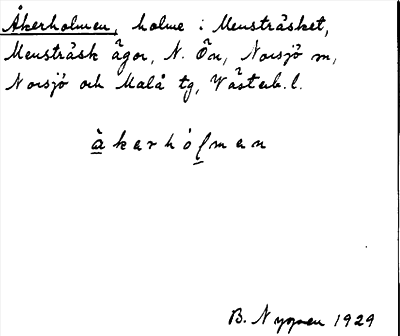 Åkerholmen, holme i Mensträsket,
Mensträsk ägor, N. Ön, Norsjö sn,
Norsjö och Malå tg, Västerb. l.
å̀kerhólmen
B. Nygren 1929